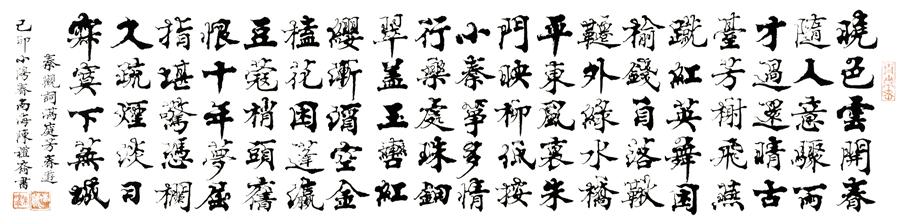 曉色雲開春
隨人意驟雨
才過還晴古
臺芳榭飛燕
蹴紅英舞困
榆錢自落鞦
韆外綠水橋
平東風裏朱
門映柳低按
小秦箏多情
行樂處珠鈿
翠蓋玉轡紅
纓漸酒空金
榼花困蓬瀛
豆蔻梢頭舊
恨十年夢屈
指堪驚憑欄
久疏煙淡日
寂寞下蕪城
秦觀詞滿庭芳春遊
己卯小陽春南海陳誼齋書